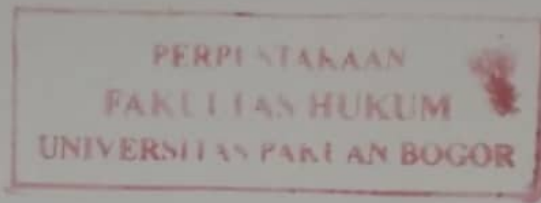 PERPUSTAKAAN
FAKULTAS HUKUM
UNIVERSITAS PAKUAN BOGOR